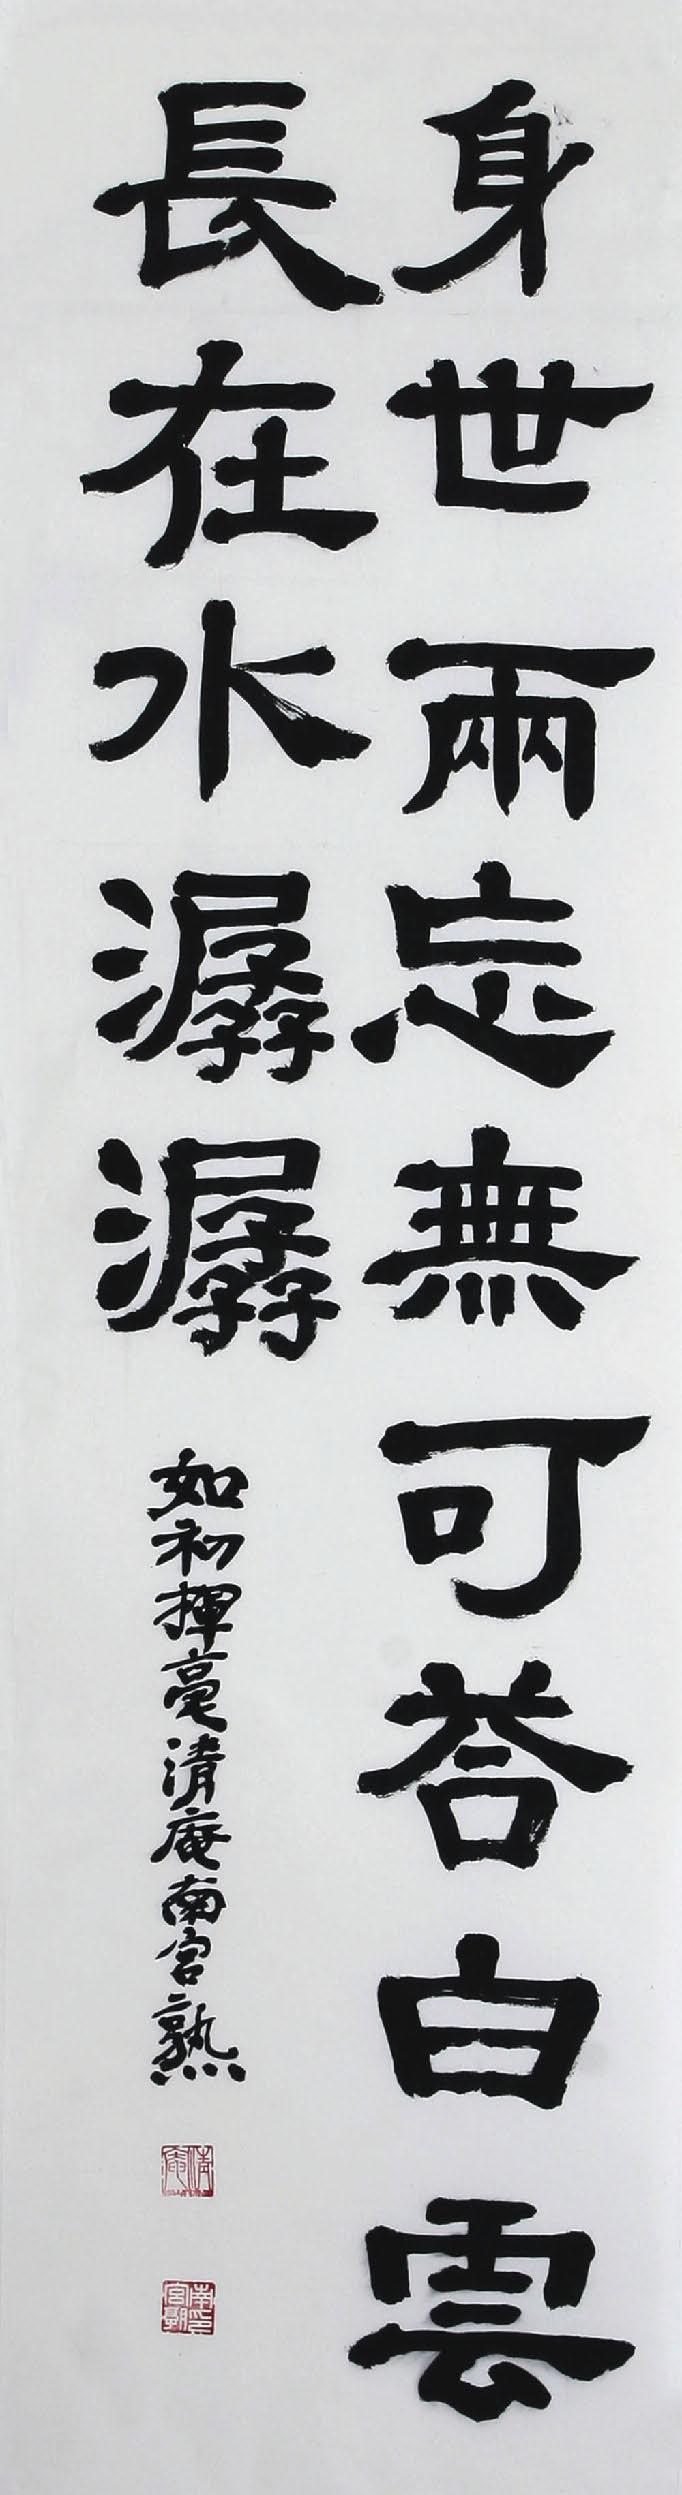 身世兩忘無可荅白雲
長在水潺潺
如初揮毫清庵南宮熟
清庵